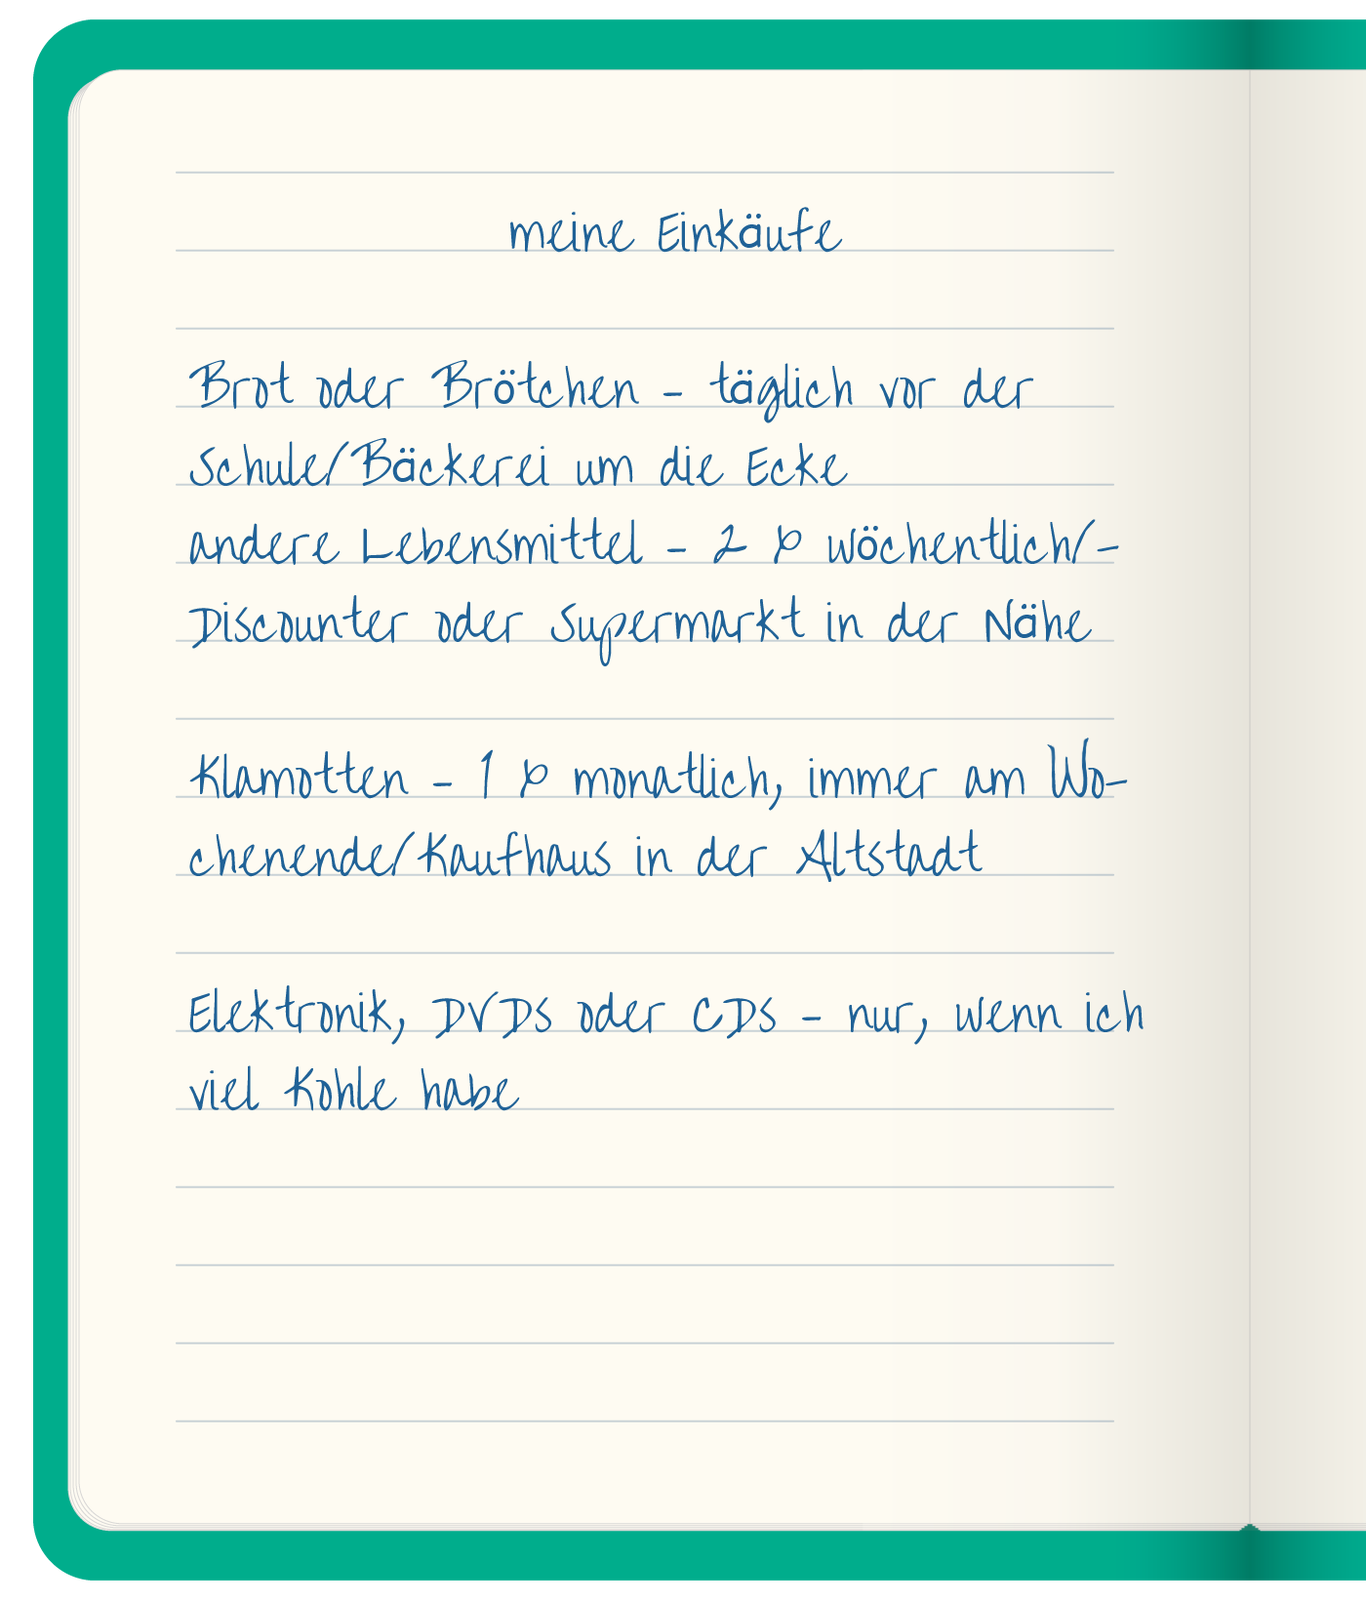 meine Einkäufe
Brot oder Brötchen – täglich vor der
Schule/Bäckerei um die Ecke
andere Lebensmittel – 2 x wöchentlich/–
Discounter oder Supermarkt in der Nähe
Klamotten – 1 x monatlich, immer am Wo-
chenende/Kaufhaus in der Altstadt
Elektronik, DVDs oder CDs – nur, wenn ich
viel Kohle habe